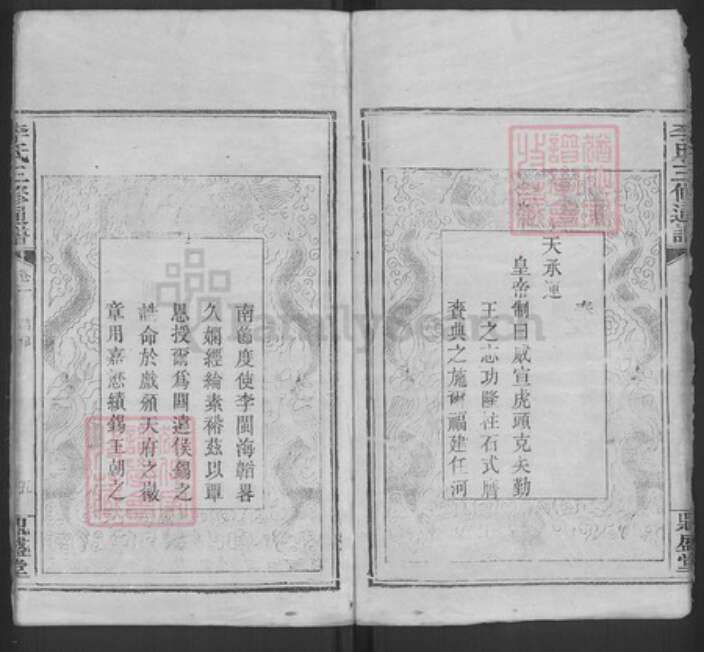 李氏三修通譜
鼎盛堂
奉
天承運
皇帝制曰威宣虎頭克矢勤
王之志功隆柱石式膺
賚典之施爾福建任河
南節度使李閩海韜畧
久嫻經綸素裕茲以覃
恩授爾爲閩遠侯錫之
誥命於戲頒天府之徽
章用嘉懋績錫王朝之
李氏三修通譜
卷一
鼎盛堂
FamilySearch